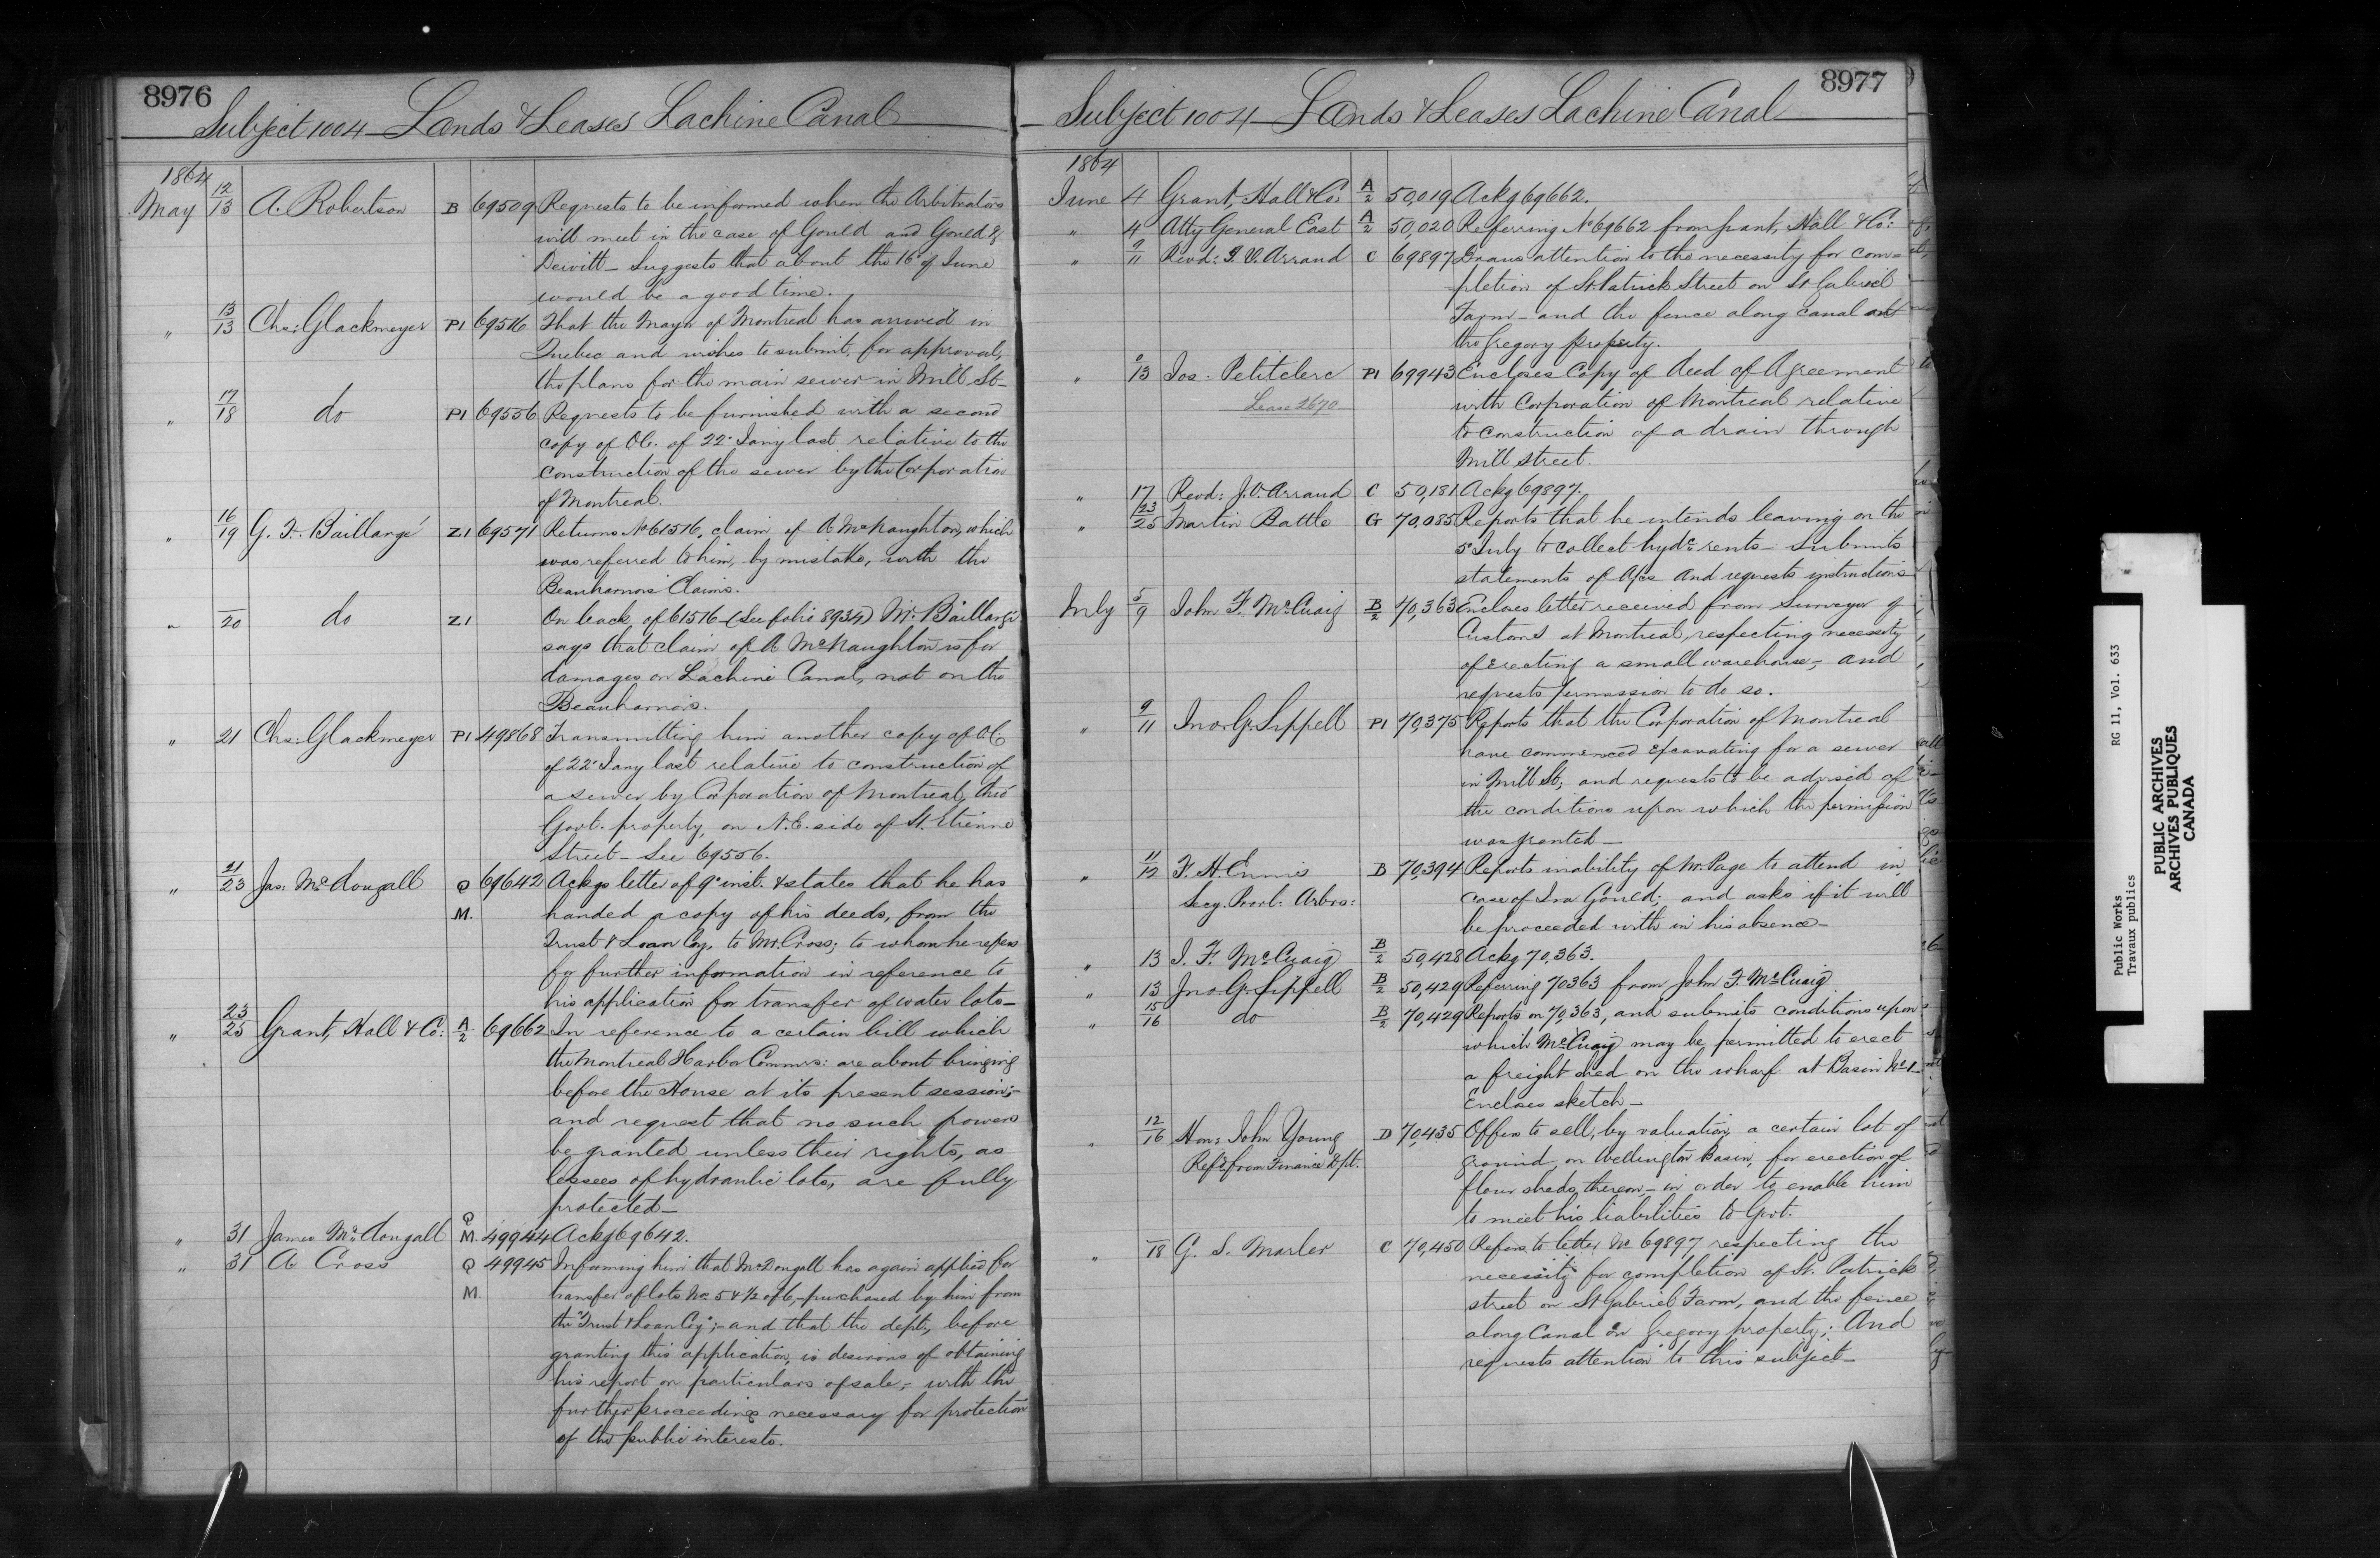 8976
Subject 1004 Lands & Leases Lachine Canal
1864
May 12/13 A. Robertson B 69509 Requests to be informed when the Arbitrators
will meet in the case of Gould and Gould &
Dewitt - Suggests that about the 16th of June
would be a good time.
" 13/13 Chs: Glackmeyer P1 69516 That the Mayor of Montreal has arrived in
Quebec and wishes to submit, for approval,
the plans for the main sewer in Mill St-
" 17/18 do P1 69556 Requests to be furnished with a second
copy of O.C. of 22d Jany last relative to the
construction of the sewer by the Corporation
of Montreal.
" 16/19 G. F. Baillargé Z1 69571 Returns No 61516, claim of A. McNaughton, which
was referred to him, by mistake, with the
Beauharnois Claims.
" /20 do Z1 On back of 61516 - (See folio 8934) Mr Baillargé
says that claim of A McNaughton is for
damages on Lachine Canal, not on the
Beauharnois.
" 21 Chs: Glackmeyer P1 49868 Transmitting him another copy of O.C.
of 22d Jany last relative to construction of
a sewer by Corporation of Montreal, thro'
Govt. property, on N.E. side of St. Etienne
Street - See 69556.
" 21/23 Jas: McDougall Q 69642 Ackgs letter of 9th inst. & states that he has
M. handed a copy of his deeds, from the
Trust & Loan Coy, to Mr. Cross; to whom he refers
for further information in reference to
his application for transfer of water lots-
" 23/25 Grant, Hall & Co: A/2 69662 In reference to a certain bill which
the Montreal Harbor Commrs: are about bringing
before the House at its present session;-
and request that no such powers
be granted unless their rights, as
lessees of hydraulic lots, are fully
protected-
Q
" 31 James McDougall M. 49944 Ackg 69642.
" 31 A Cross Q 49945 Informing him that McDougall has again applied for
M. transfer of lots Nos 5 & 1/2 of 6,-purchased by him from
the "Trust & Loan Coy";-and that the dept., before
granting this application, is desirous of obtaining
his report on particulars of sale;- with the
further proceedings necessary for protection
of the public interests.
8977
Subject 1004 Lands & Leases Lachine Canal
1864
June 4 Grant, Hall & Co: A/2 50,019 Ackg 69662.
" 4 Atty General East A/2 50,020 Referring No 69662 from Grant, Hall & Co:
" 9/11 Revd: J. V. Arraud C 69897 Draws attention to the necessity for com=
pletion of St Patrick Street on St Gabriel
Farm - and the fence along canal at
the Gregory property.
" 9/13 Jos. Petitclerc P1 69943 Encloses Copy of Deed of Agreement
Lease 2670 with Corporation of Montreal relative
to construction of a drain through
Mill Street.
" 17 Revd: J. V. Arraud C 50,181 Ackg 69897.
" 23/25 Martin Battle G 70,085 Reports that he intends leaving on the
5th July to collect hydc rents - Submits
statements of A/cs and requests instructions
July 5/9 John F. McCuaig B/2 70,363 Encloses letter received from Surveyor of
Customs at Montreal, respecting necessity
of erecting a small warehouse,- and
requests permission to do so.
" 9/11 Jno. G. Sippell P1 70,375 Reports that the Corporation of Montreal
have commenced excavating for a sewer
in Mill St; and requests to be advised of
the conditions upon which the permission
was granted-
" 11/12 F. H. Ennis D 70,394 Reports inability of Mr. Page to attend in
Secy. Provl: Arbrs: case of Ira Gould; and asks if it will
be proceeded with in his absence-
" 13 J. F. McCuaig B/2 50,428 Ackg 70,363.
" 13 Jno. G. Sippell B/2 50,429 Referring 70363 from John F. McCuaig
" 15/16 do B/2 70,429 Reports on 70,363, and submits conditions upon
which McCuaig may be permitted to erect
a freight shed on the wharf at Basin No 1-
Encloses sketch-
" 12/16 Hon: John Young D 70,435 Offers to sell, by valuation, a certain lot of
Refd from Finance Dpt. ground, on Wellington Basin, for erection of
flour sheds thereon,- in order to enable him
to meet his liabilities to Govt.
" /18 G. L. Marler C 70,450 Refers to letter No 69897 respecting the
necessity for completion of St. Patrick
street on St Gabriel Farm, and the fence
along Canal on Gregory property; And
requests attention to this subject-
Public Works RG 11, Vol. 633
Travaux publics
PUBLIC ARCHIVES
ARCHIVES PUBLIQUES
CANADA